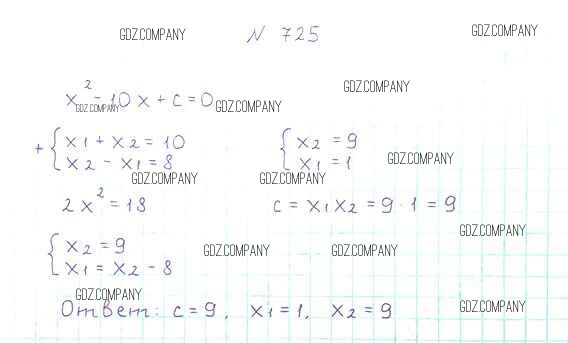 GDZ.COMPANY
№ 725
GDZ.COMPANY
GDZ.COMPANY
x² - 10x + c = 0
GDZ.COMPANY
GDZ.COMPANY
+ { x1 + x2 = 10
x2 - x1 = 8
{ x2 = 9
x1 = 1
GDZ.COMPANY
GDZ.COMPANY
GDZ.COMPANY
2x² = 18
c = x1x2 = 9 · 1 = 9
GDZ.COMPANY
{ x2 = 9
x1 = x2 - 8
GDZ.COMPANY
GDZ.COMPANY
GDZ.COMPANY
Ответ: c = 9, x1 = 1, x2 = 9
GDZ.COMPANY